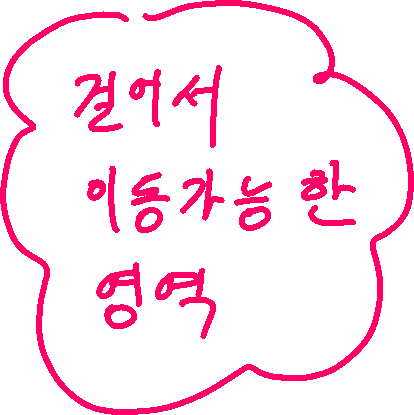 걸어서
이동가능한
영역